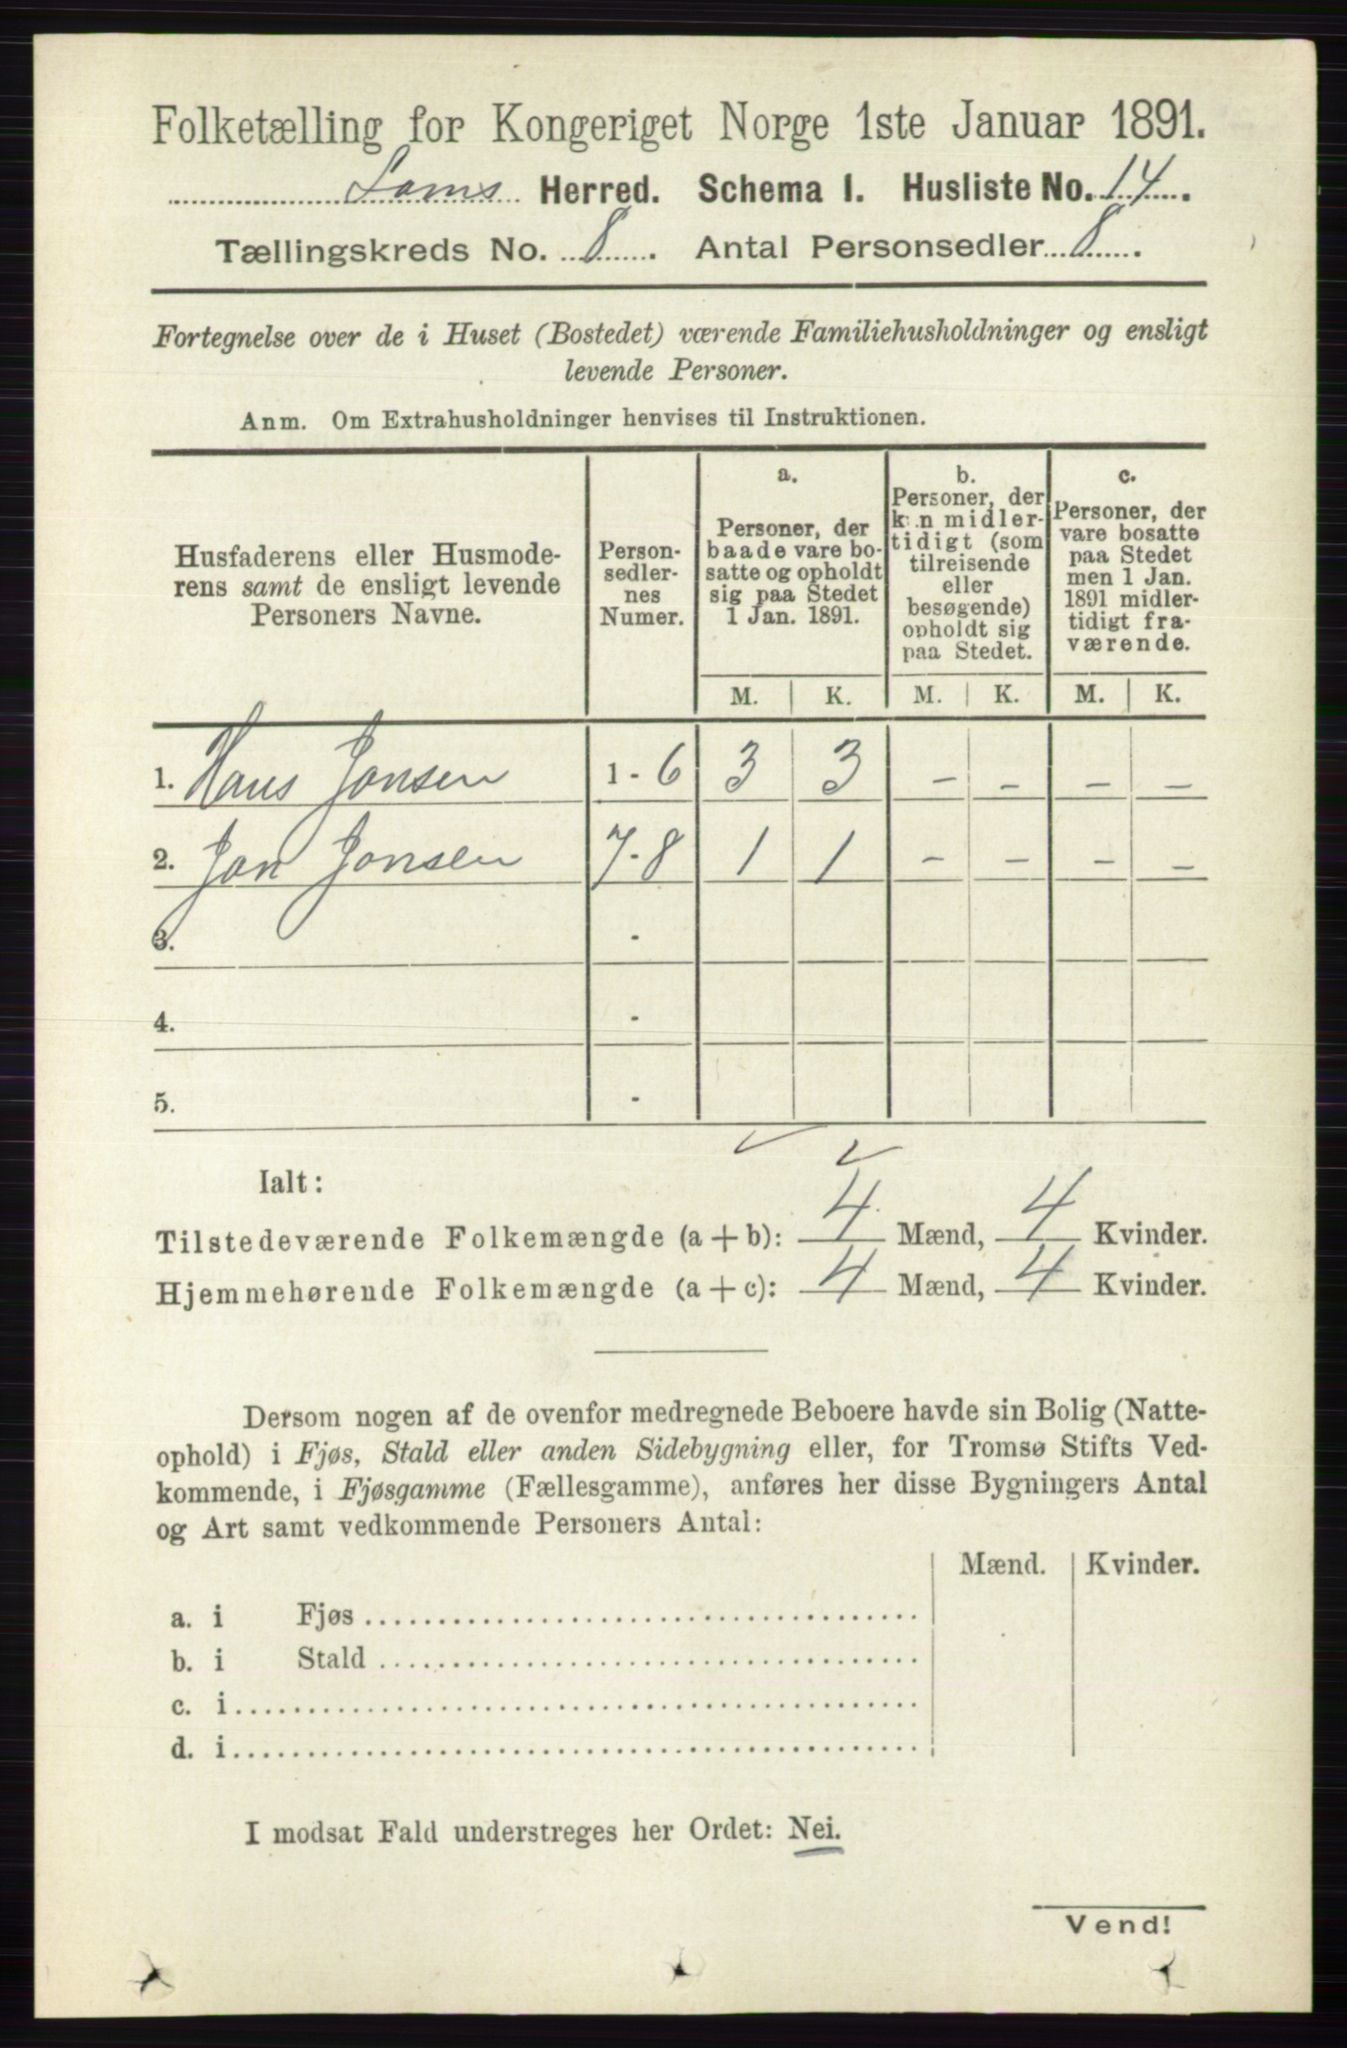 Folketælling for Kongeriget Norge 1ste Januar 1891.
Loms Herred. Schema I. Husliste No. 14.
Tællingskreds No. 8. Antal Personsedler 8.
Fortegnelse over de i Huset (Bostedet) værende Familiehusholdninger og ensligt
levende Personer.
Anm. Om Extrahusholdninger henvises til Instruktionen.
Husfaderens eller Husmode-
rens samt de ensligt levende
Personers Navne.
Person-
sedler-
nes
Numer.
a.
Personer, der
baade vare bo-
satte og opholdt
sig paa Stedet
1 Jan. 1891.
b.
Personer, der
kun midler-
tidigt (som
tilreisende
eller
besøgende)
opholdt sig
paa Stedet.
c.
Personer, der
vare bosatte
paa Stedet
men 1 Jan.
1891 midler-
tidigt fra-
værende.
M. K. M. K. M. K.
1. Hans Jonsen 1 - 6 3 3 - - - -
2. Jon Jonsen 7-8 1 1 - - - -
3. -
4. -
5. -
Ialt:
Tilstedeværende Folkemængde (a + b): 4 Mænd, 4 Kvinder.
Hjemmehørende Folkemængde (a + c): 4 Mænd, 4 Kvinder.
Dersom nogen af de ovenfor medregnede Beboere havde sin Bolig (Natte-
ophold) i Fjøs, Stald eller anden Sidebygning eller, for Tromsø Stifts Ved-
kommende, i Fjøsgamme (Fællesgamme), anføres her disse Bygningers Antal
og Art samt vedkommende Personers Antal:
Mænd. Kvinder.
a. i Fjøs
b. i Stald
c. i
d. i
I modsat Fald understreges her Ordet: Nei.
Vend!